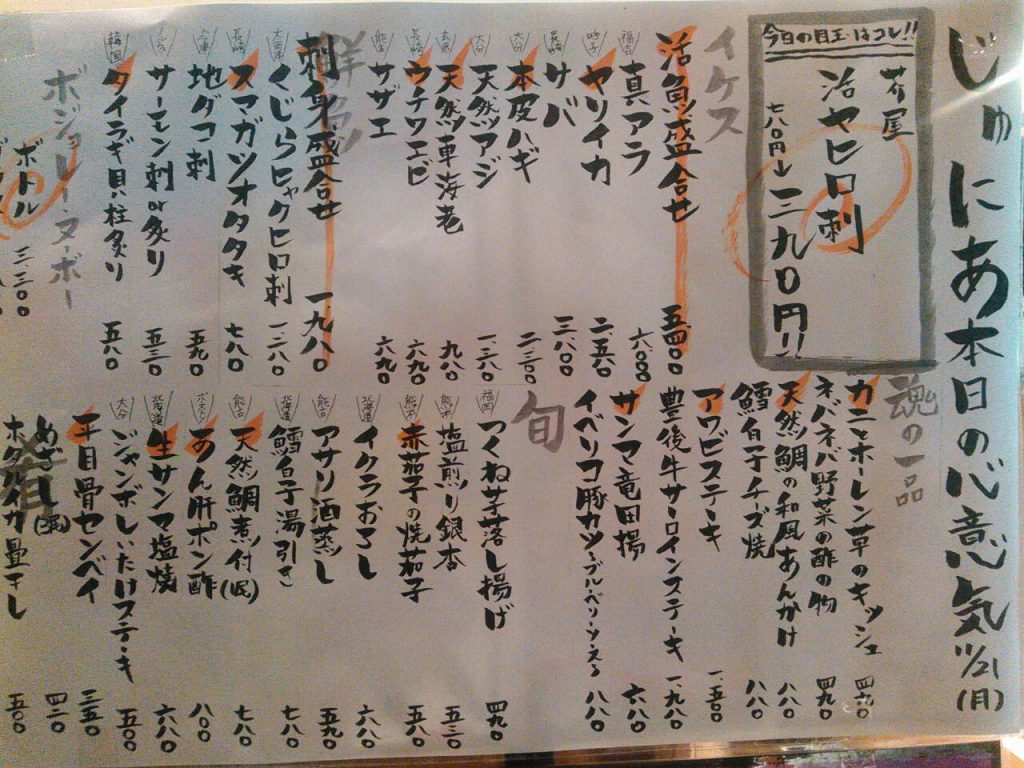 じゅにあ本日の心意気 11/21(月)
今日の目玉はコレ!!
芥屋
活ヤヒロ刺
七八〇円→一三九〇円!!
イケス
活魚盛合せ 五四〇〇
福吉 真アラ 六〇〇〇
呼子 ヤリイカ 二五八〇
長崎 サバ 三八〇〇
大分 本皮ハギ 二三〇〇
大分 天然アジ 一、三八〇
天然車海老 九八〇
長崎 ウチワエビ 六九〇
能古 サザエ 六九〇
鮮魚
刺身盛合せ 一、九八〇
くじらヒャクヒロ刺 一、三八〇
長崎 スマガツオタタキ 七八〇
今津 地ダコ刺 五九〇
サーモン刺or炙り 五三〇
韓国 タイラギ貝柱炙り 五八〇
ボジョレーヌーボー
ボトル 三三〇〇
魂の一品
カニとホーレン草のキッシュ 四六〇
ネバネバ野菜の酢の物 四九〇
天然鯛の和風あんかけ 八八〇
鱈白子チーズ焼 八八〇
アワビステーキ 一、五〇〇
豊後牛サーロインステーキ 一、九八〇
サンマ竜田揚 六八〇
イベリコ豚カツ〜ブルーベリーソース〜 八八〇
旬
福岡 つくね芋落し揚げ 四九〇
熊本 塩煎り銀杏 五三〇
熊本 赤茄子の焼茄子 五八〇
北海道 イクラおろし 六八〇
能古 アサリ酒蒸し 五九〇
北海道 鱈白子湯引き 七八〇
能古 天然鯛煮付(小) 七八〇
ボストン あん肝ポン酢 八〇〇
北海道 生サンマ塩焼 六八〇
大分 ジャンボしいたけステーキ 五〇〇
肴
平目骨センベイ 三五〇
めざし 四二〇
ホタルイカ畳干し 五〇〇